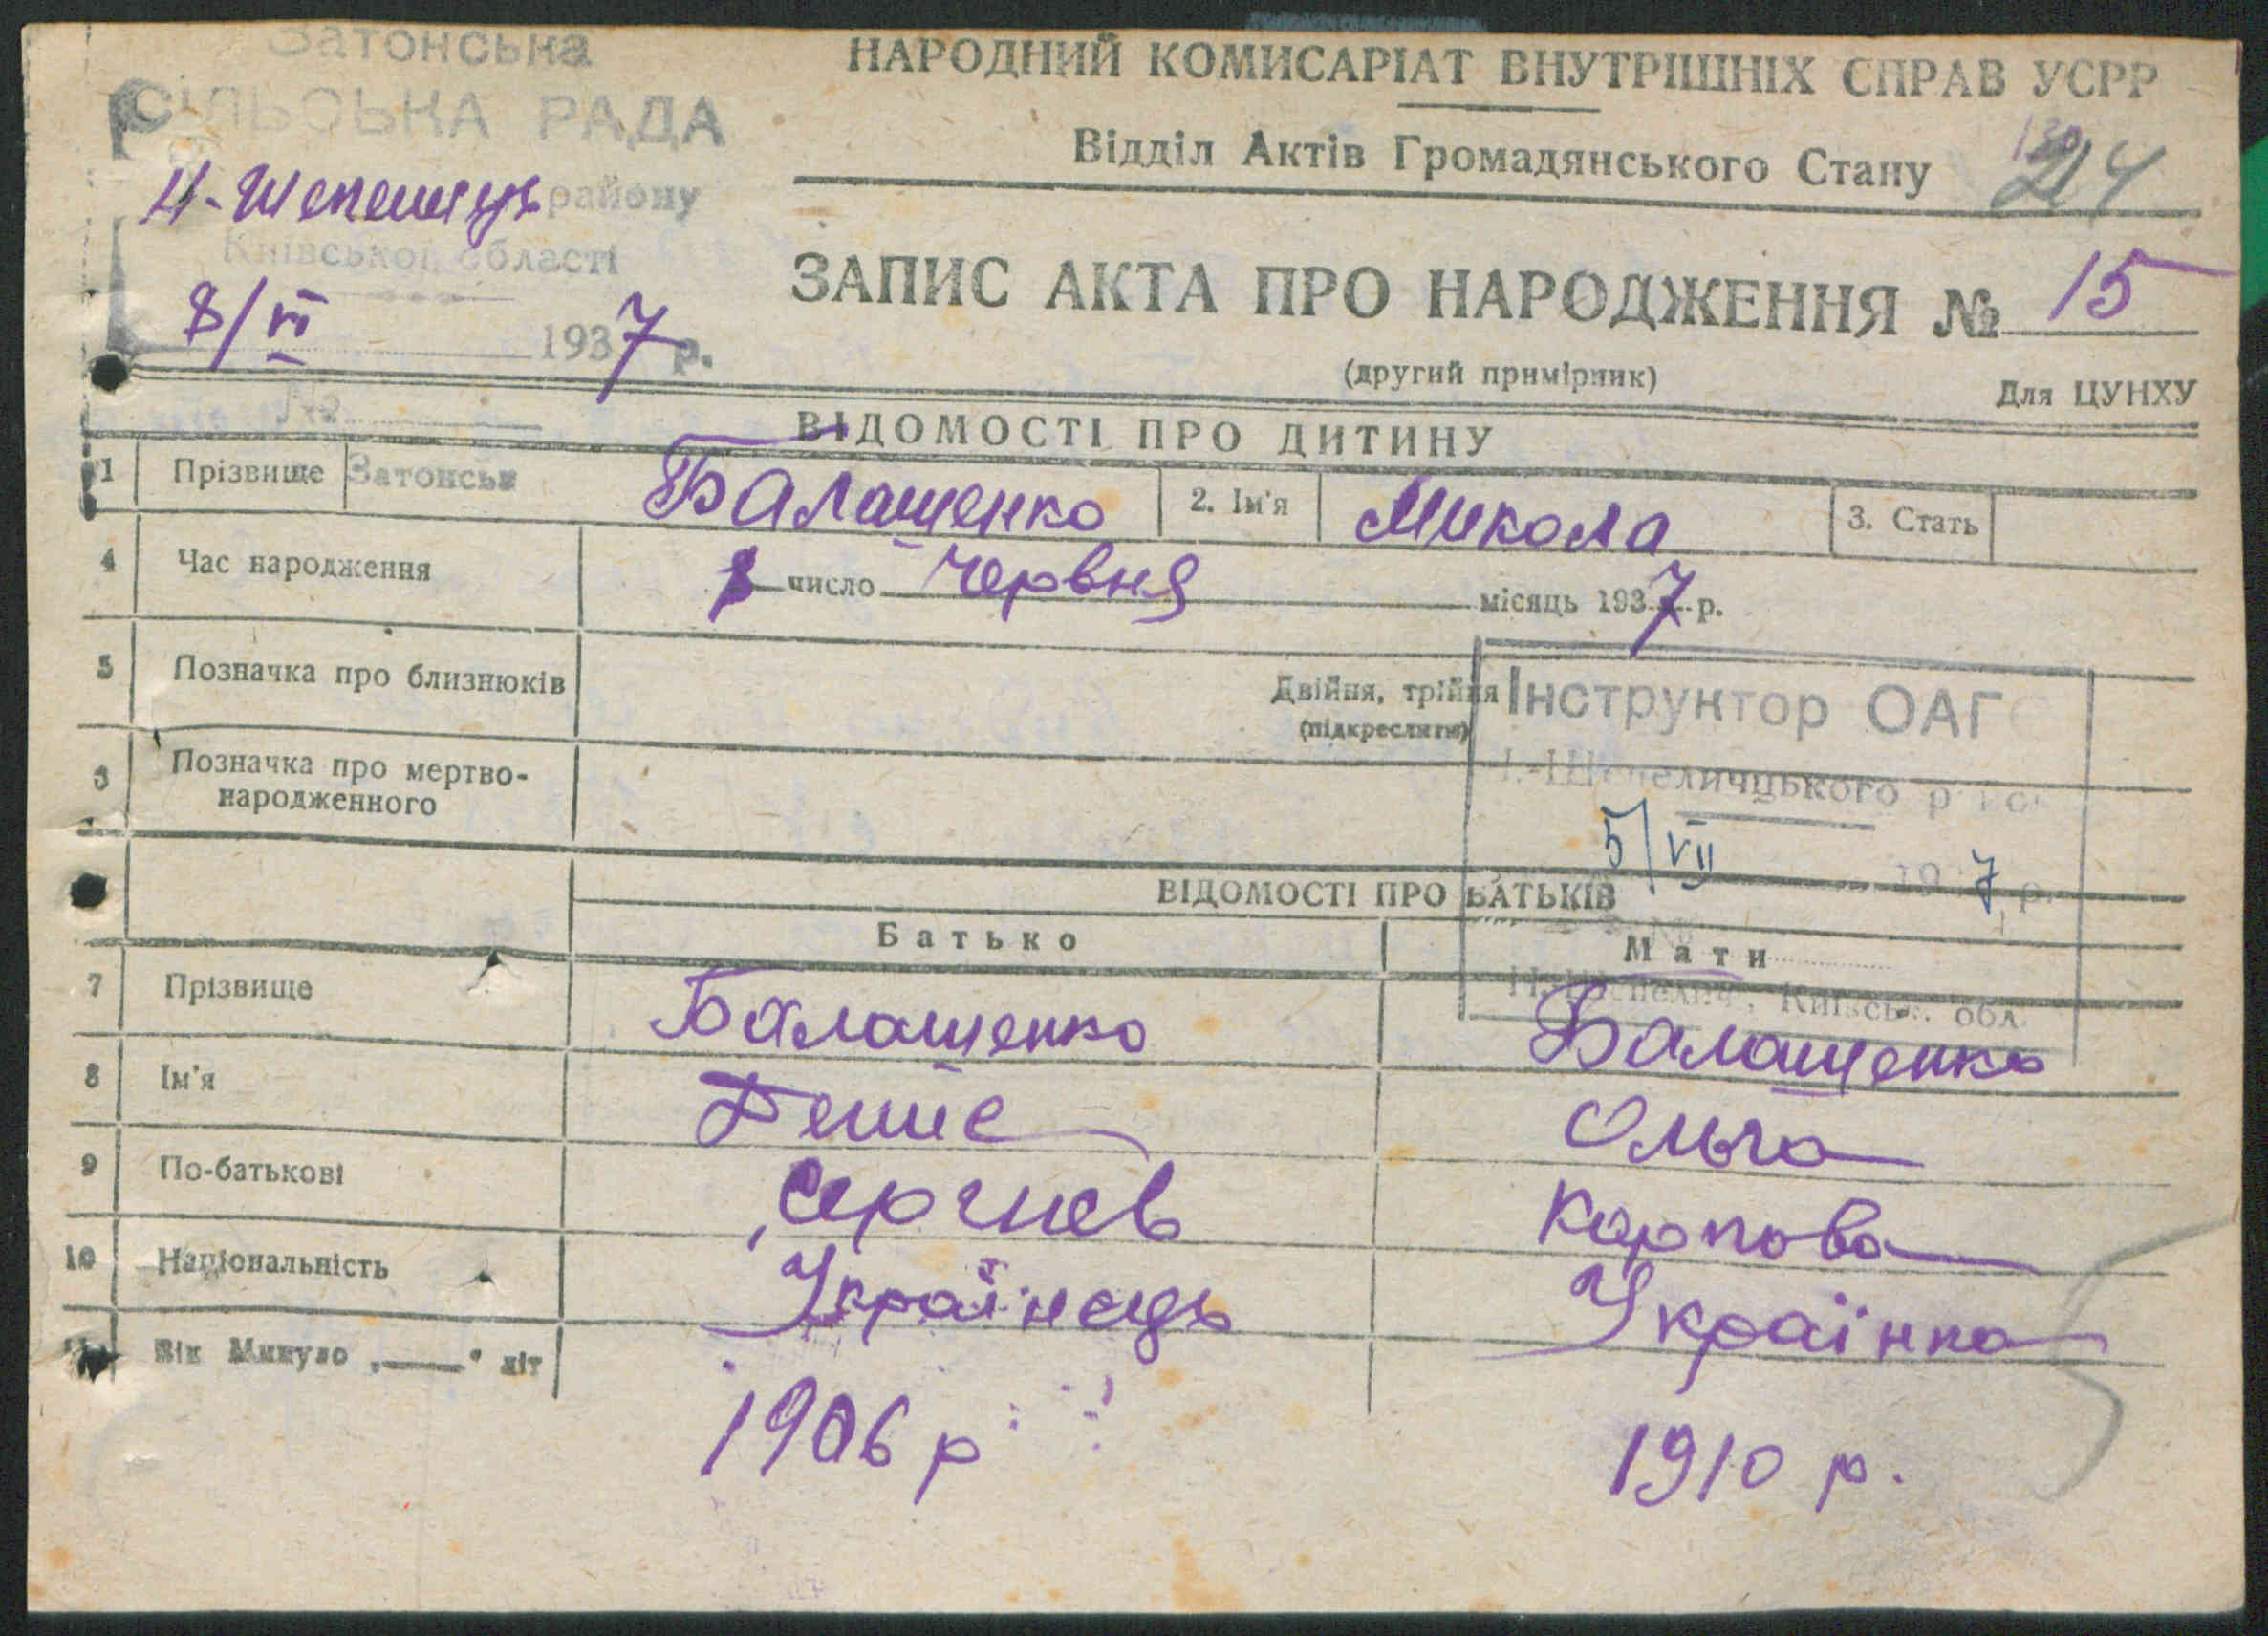 Затонська
СІЛЬСЬКА РАДА
Н-Шепелиць району
Київської області
8/VI 1937 р.
№
НАРОДНИЙ КОМИСАРІАТ ВНУТРІШНІХ СПРАВ УСРР
Відділ Актів Громадянського Стану
214
ЗАПИС АКТА ПРО НАРОДЖЕННЯ № 15
(другий примірник)
Для ЦУНХУ
ВІДОМОСТІ ПРО ДИТИНУ
1 Прізвище Затонськ Балашенко 2. Ім'я Микола 3. Стать
4 Час народження число червня місяць 1937 р.
5 Позначка про близнюків Двійня, трійня
(підкреслити)
Інструктор ОАГС
6 Позначка про мертво-
народженного
Н.-Шепеличцького
5/VII 1937 р.
ВІДОМОСТІ ПРО БАТЬКІВ
Батько Мати
Н. Шепеличі, Київськ. обл.
7 Прізвище Балашенко Балашенко
8 Ім'я Денис Ольга
9 По-батькові Сергиев Карпова
10 Національність Українець Українка
11 Вік Минуло „—" літ
1906 р 1910 р.